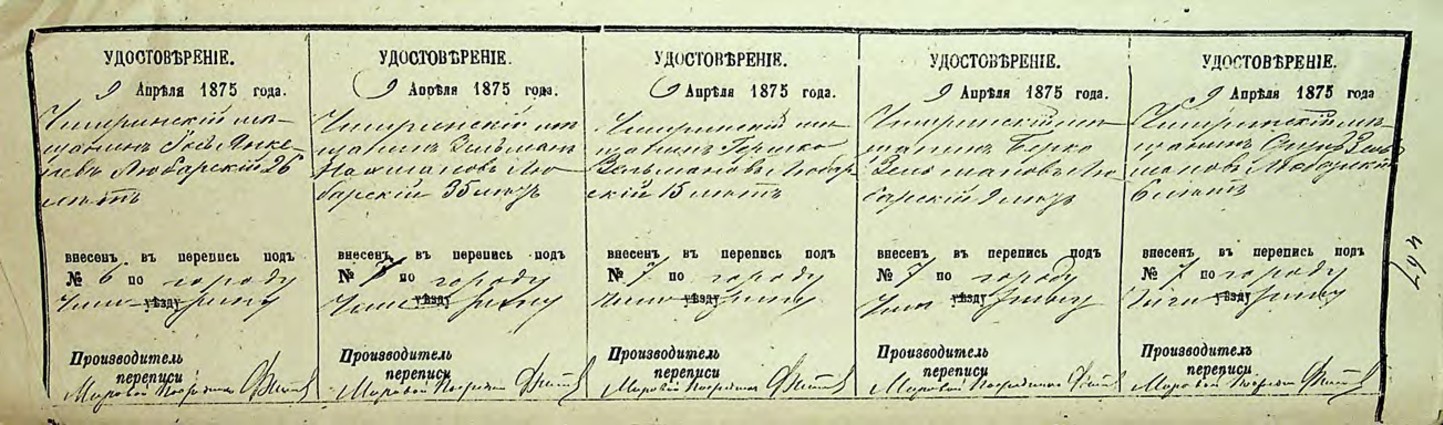 УДОСТОВѢРЕНІЕ.
9 Апрѣля 1875 года.
Чигиринскій мѣ-
щанинъ Янке-
левъ Любарскій 26
лѣтъ
внесенъ въ перепись подъ
№ 6 по городу
Чиги- уѣзду рину
Производитель
переписи
Мировой Посредникъ
УДОСТОВѢРЕНІЕ.
9 Апрѣля 1875 года.
Чигиринскій мѣ
щанинъ Зельман
Нахмановъ Лю-
барскій 35 лѣтъ
внесенъ въ перепись подъ
№ 7 по городу
Чиги уѣзду рину
Производитель
переписи
Мировой Посредникъ
УДОСТОВѢРЕНІЕ.
9 Апрѣля 1875 года.
Чигиринскій мѣ
щанинъ Гершко
Зельмановъ Любар
скій 15 лѣтъ
внесенъ въ перепись подъ
№ 7 по городу
Чиги уѣзду рину
Производитель
переписи
Мировой Посредникъ
УДОСТОВѢРЕНІЕ.
9 Апрѣля 1875 года.
Чигиринскій мѣ
щанинъ Берко
Зельмановъ Лю
барскій 9 лѣтъ
внесенъ въ перепись подъ
№ 7 по городу
Чиги уѣзду рину
Производитель
переписи
Мировой Посредникъ
УДОСТОВѢРЕНІЕ.
9 Апрѣля 1875 года
Чигиринскій мѣ
щанинъ Зель
мановъ Любарскій
6 лѣтъ
внесенъ въ перепись подъ
№ 7 по городу
Чиги уѣзду рину
Производитель
переписи
Мировой Посредникъ